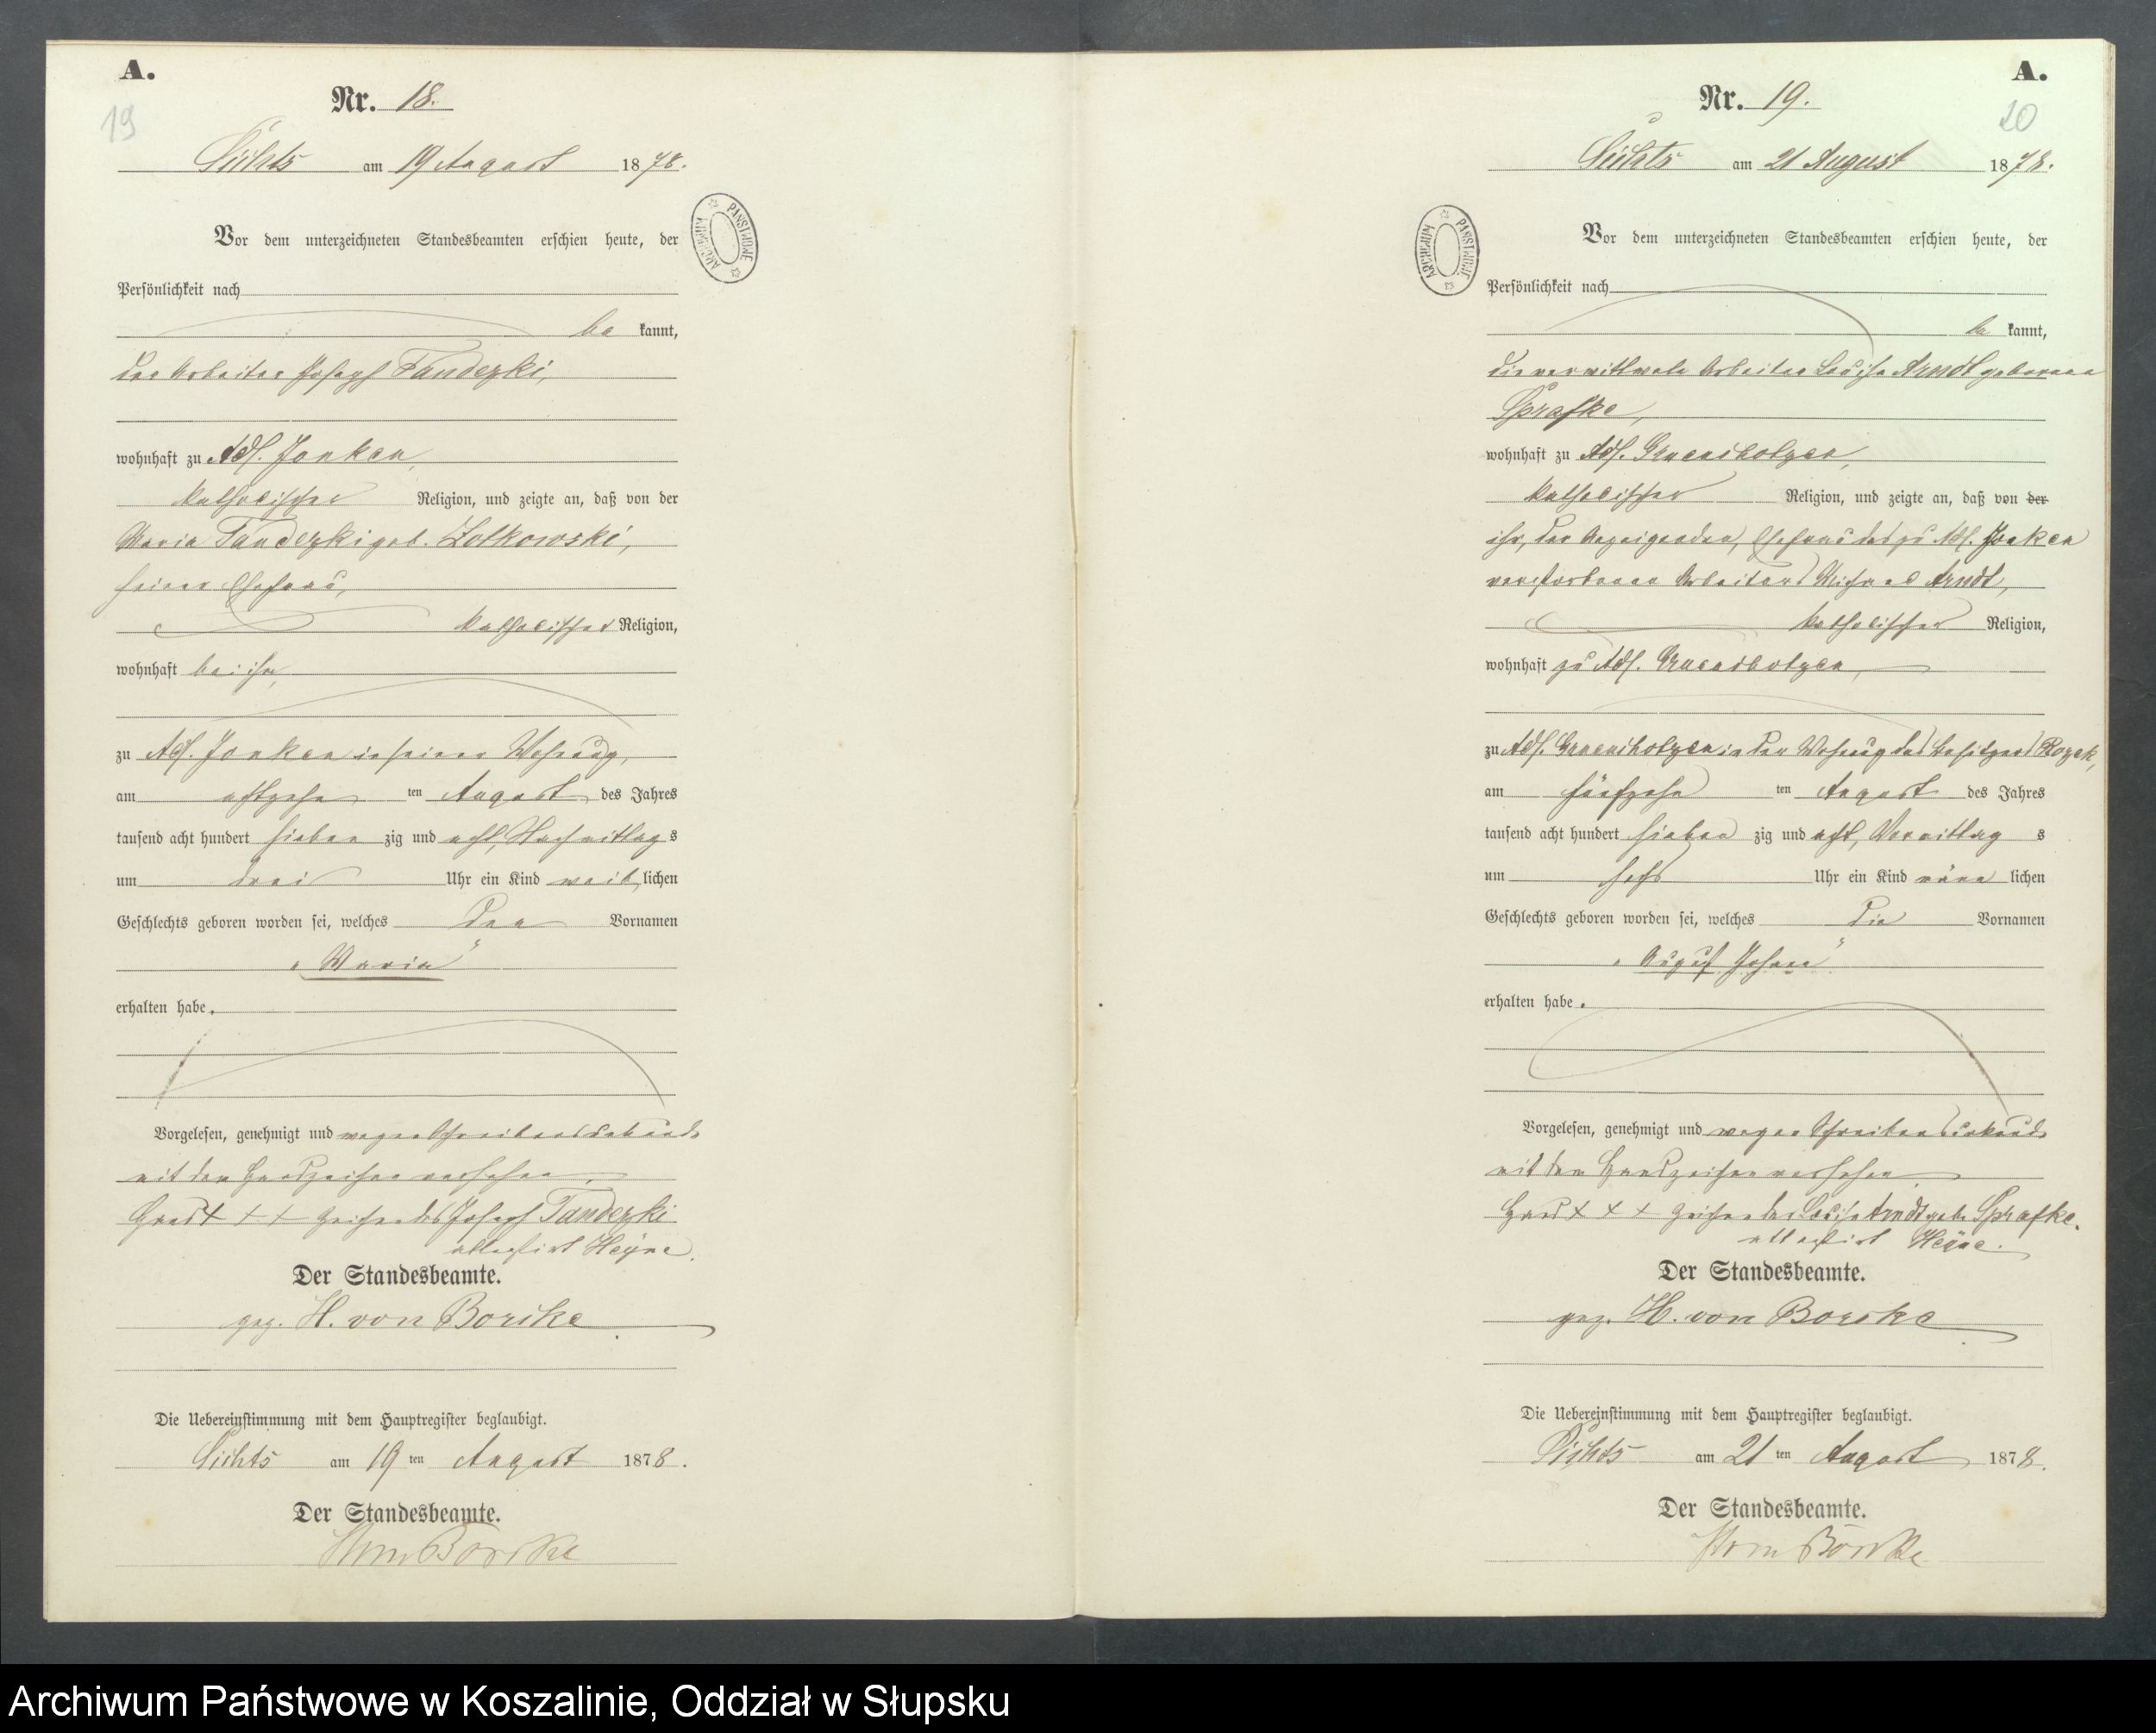 A.
19
Nr. 18.
Lüchts am 19 August 1878.
Vor dem unterzeichneten Standesbeamten erschien heute, der
Persönlichkeit nach
be kannt,
der Arbeiter Joseph Tandezki,
wohnhaft zu Adl. Jonken,
katholischer Religion, und zeigte an, daß von der
Maria Tandezki geb. Zolkowski,
seiner Ehefrau,
katholischer Religion,
wohnhaft bei ihm,
zu Adl. Jonken in seiner Wohnung,
am achtzehn ten August des Jahres
tausend acht hundert sieben zig und acht, Nachmittag s
um drei Uhr ein Kind weib lichen
Geschlechts geboren worden sei, welches den Vornamen
„Maria“
erhalten habe.
Vorgelesen, genehmigt und wegen Schreibensunkunde
mit dem Handzeichen versehen.
Hand + + + zeichen des Joseph Tandezki
attestirt Heyne.
Der Standesbeamte.
gez. H. von Borcke
Die Uebereinstimmung mit dem Hauptregister beglaubigt.
am 19 ten August 1878.
Der Standesbeamte.
von Borcke
ARCHIWUM PAŃSTWOWE
A.
20
Nr. 19.
Lüchts am 21 August 1878.
Vor dem unterzeichneten Standesbeamten erschien heute, der
Persönlichkeit nach
be kannt,
die verwittwete Arbeiter Louise Arndt geborene
Sprafke,
wohnhaft zu Adl.
katholischer Religion, und zeigte an, daß von der
ihr, der Anzeigenden, Ehefrau des zu Adl. Jonken
verstorbenen Arbeiters Michael Arndt,
katholischer Religion,
wohnhaft zu Adl.
zu Adl. in der Wohnung des Besitzers Rozek,
am fünfzehn ten August des Jahres
tausend acht hundert sieben zig und acht, Vormittag s
um sechs Uhr ein Kind männ lichen
Geschlechts geboren worden sei, welches die Vornamen
„August Johann“
erhalten habe.
Vorgelesen, genehmigt und wegen Schreibensunkunde
mit dem Handzeichen versehen.
Hand + + + zeichen der Louise Arndt geb. Sprafke.
attestirt Heyne.
Der Standesbeamte.
gez. H. von Borcke
Die Uebereinstimmung mit dem Hauptregister beglaubigt.
am 21 ten August 1878.
Der Standesbeamte.
von Borcke
ARCHIWUM PAŃSTWOWE
Archiwum Państwowe w Koszalinie, Oddział w Słupsku